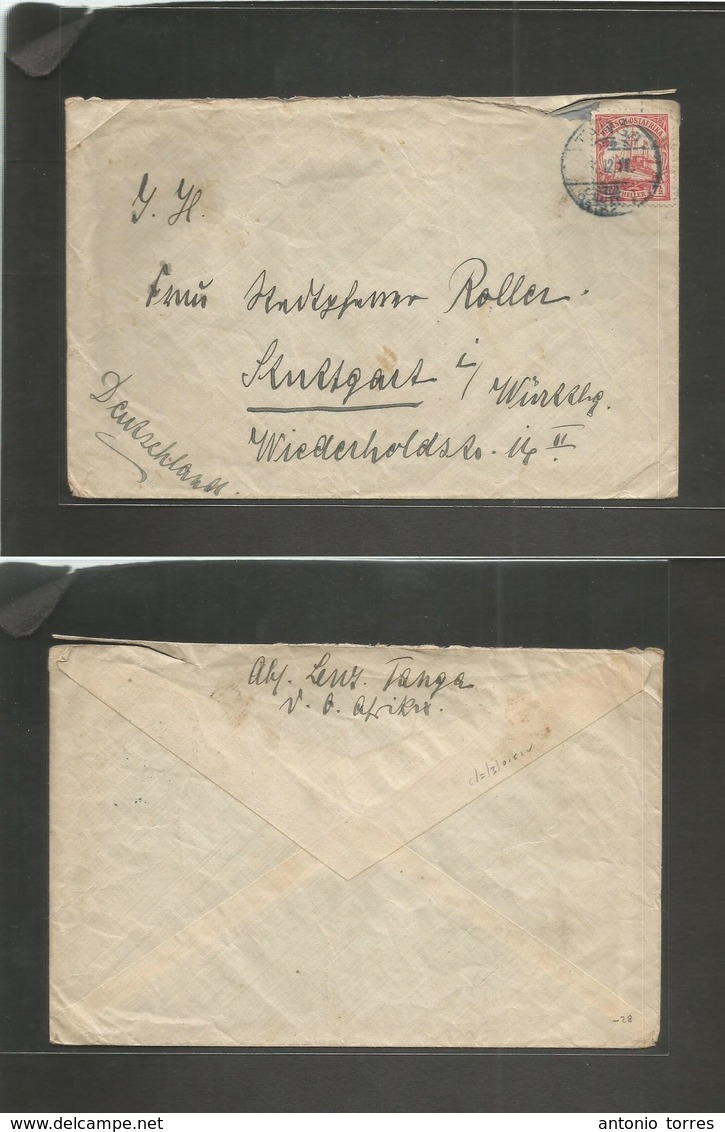 DEUTSCH-OSTAFRIKA
7½
HELLER
I. H.
Frau Stadtpfarrer Roller.
Stuttgart i/
Württbg.
Deutschland.
Wiederholdstr. II
Abs. Lenz. Tanga
D. O. Afrika.
-28
www.delcampe.net
antonio torres